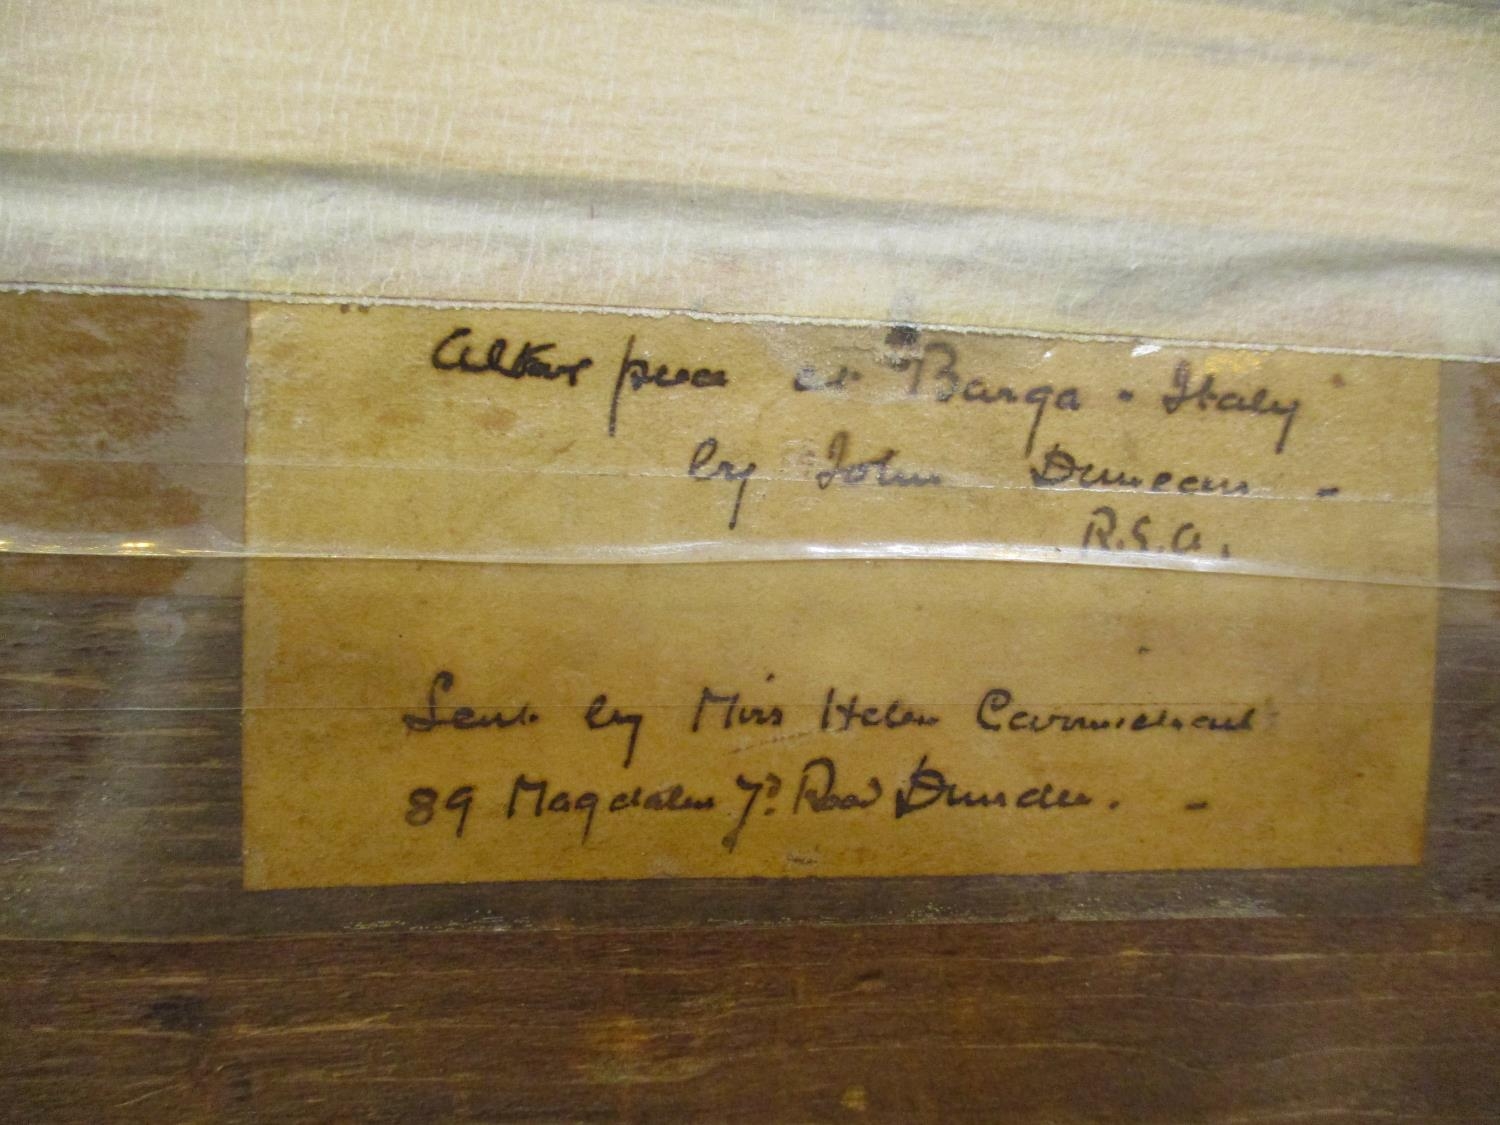 Altar piece at Barga - Italy
by John Duncan -
R.S.A.
Lent by Miss Helen Carmichael
89 Magdalen Yd. Road Dundee. -